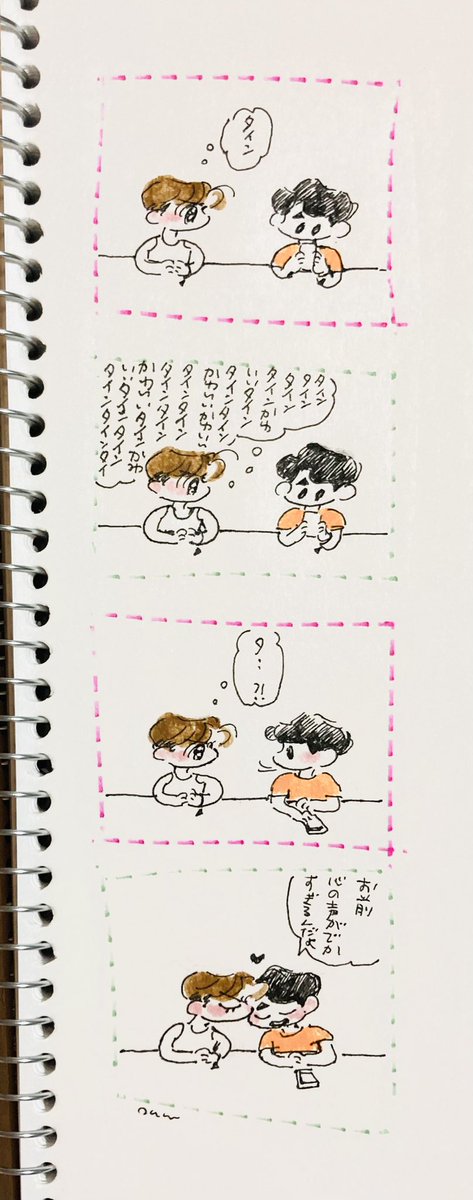 タイン
タイン
タイン
タイン
タインかわ
いいタイン
タインタイン
かわいいかわいい
タインタイン
タインタイン
かわいいタインかわ
いいタインタイン
タインタインタイ
タ…?!
お前
心の声がでか
すぎるんだよ